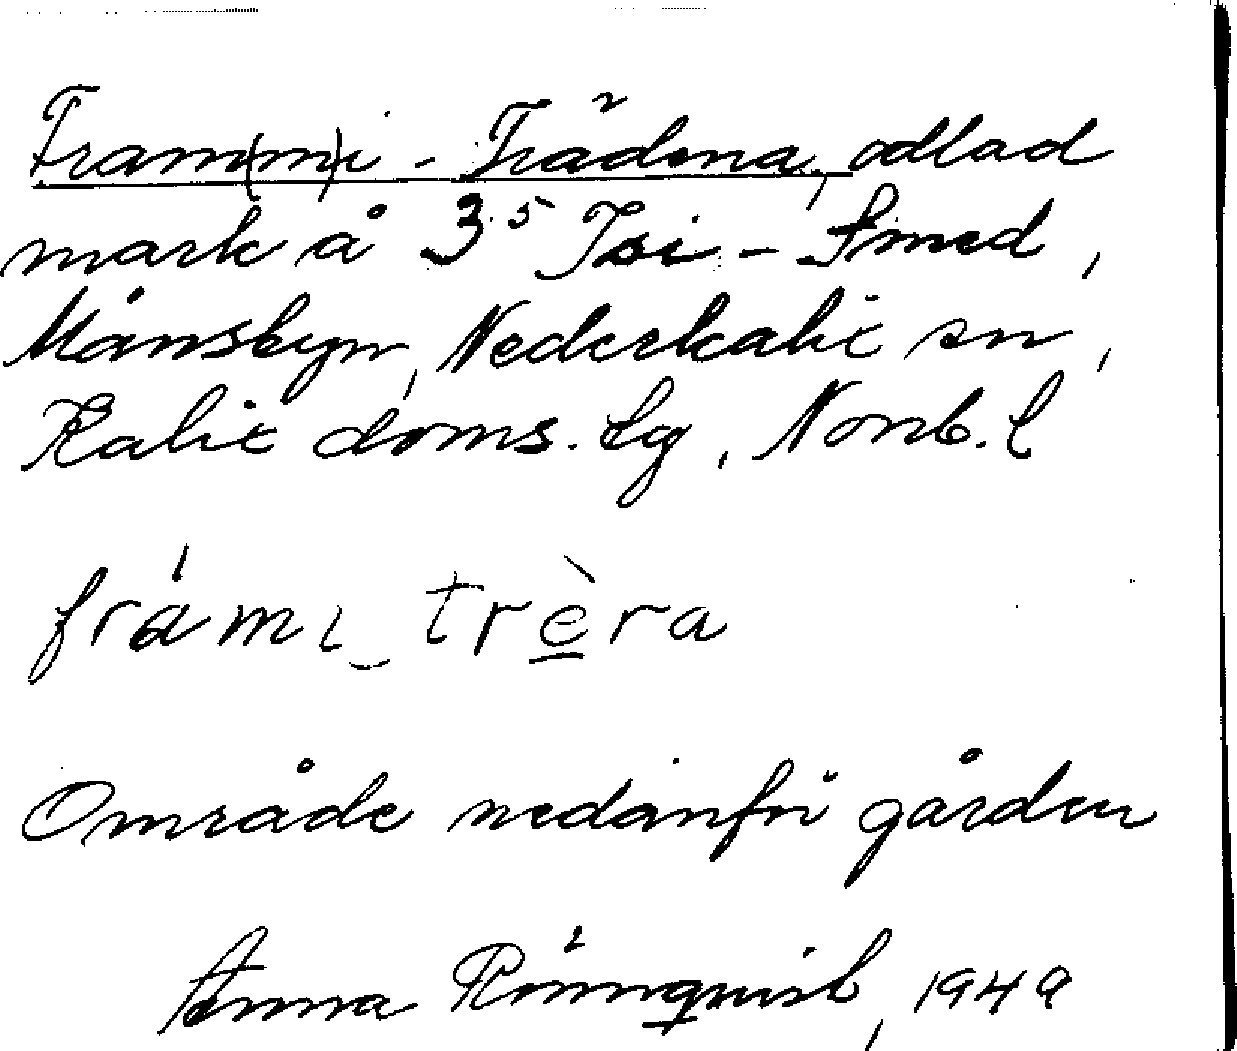 Fram(m)i - Trädena, odlad
mark å 3⁵ Isi - Smed,
Månsbyn, Nederkalix sn,
Kalix doms. lg, Norrb. l
frámι‿trèra
Område nedanför gården
Anna Rönnqvist, 1949